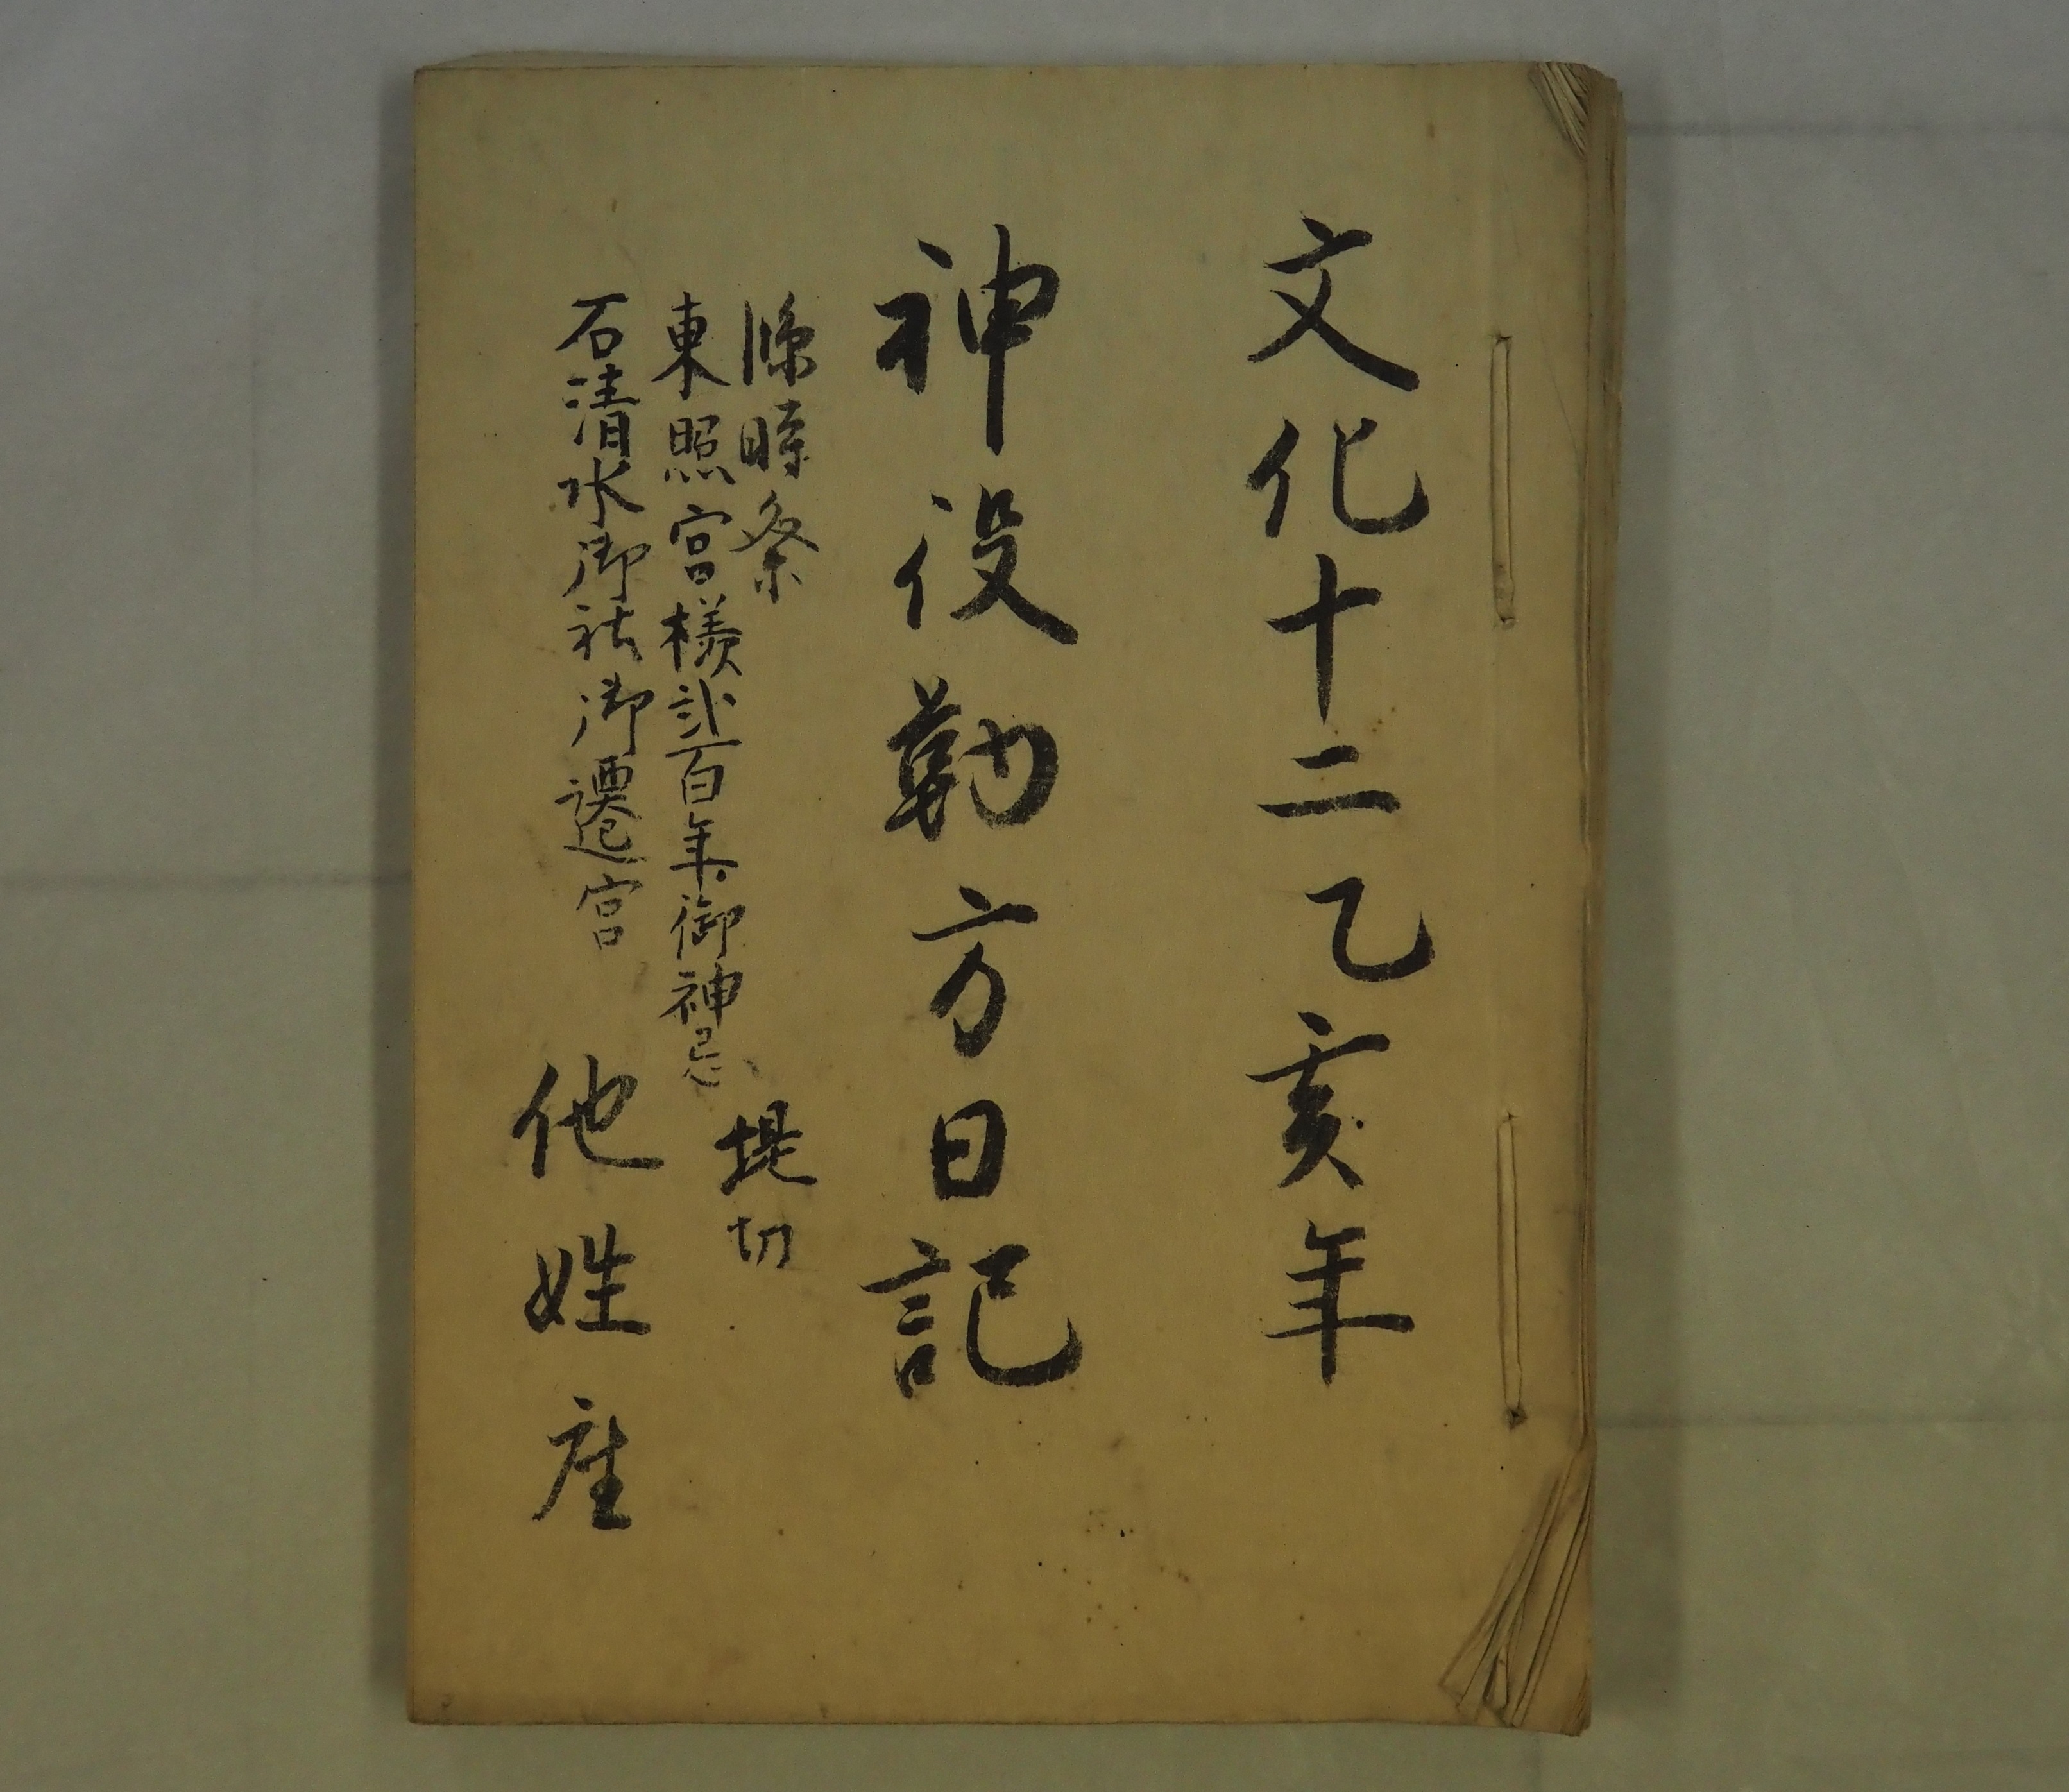 文化十二乙亥年
神役勤方日記
臨時祭
東照宮様弐百年御神忌
石清水御社御遷宮
堤切
他姓座